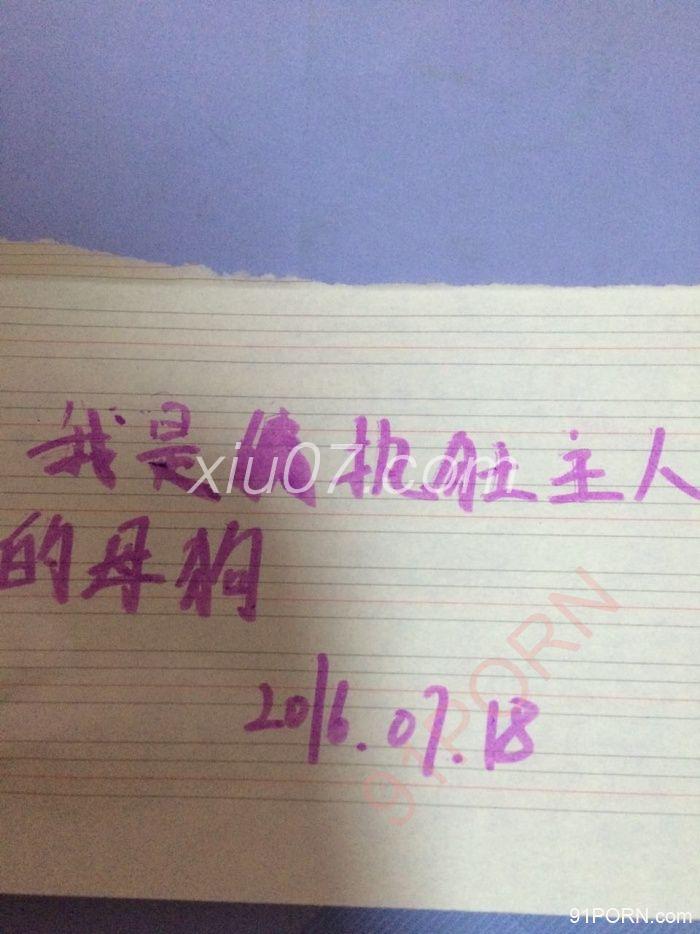 我是主人
xiu07.com
的母狗
2016.07.18
91PORN
91PORN.com